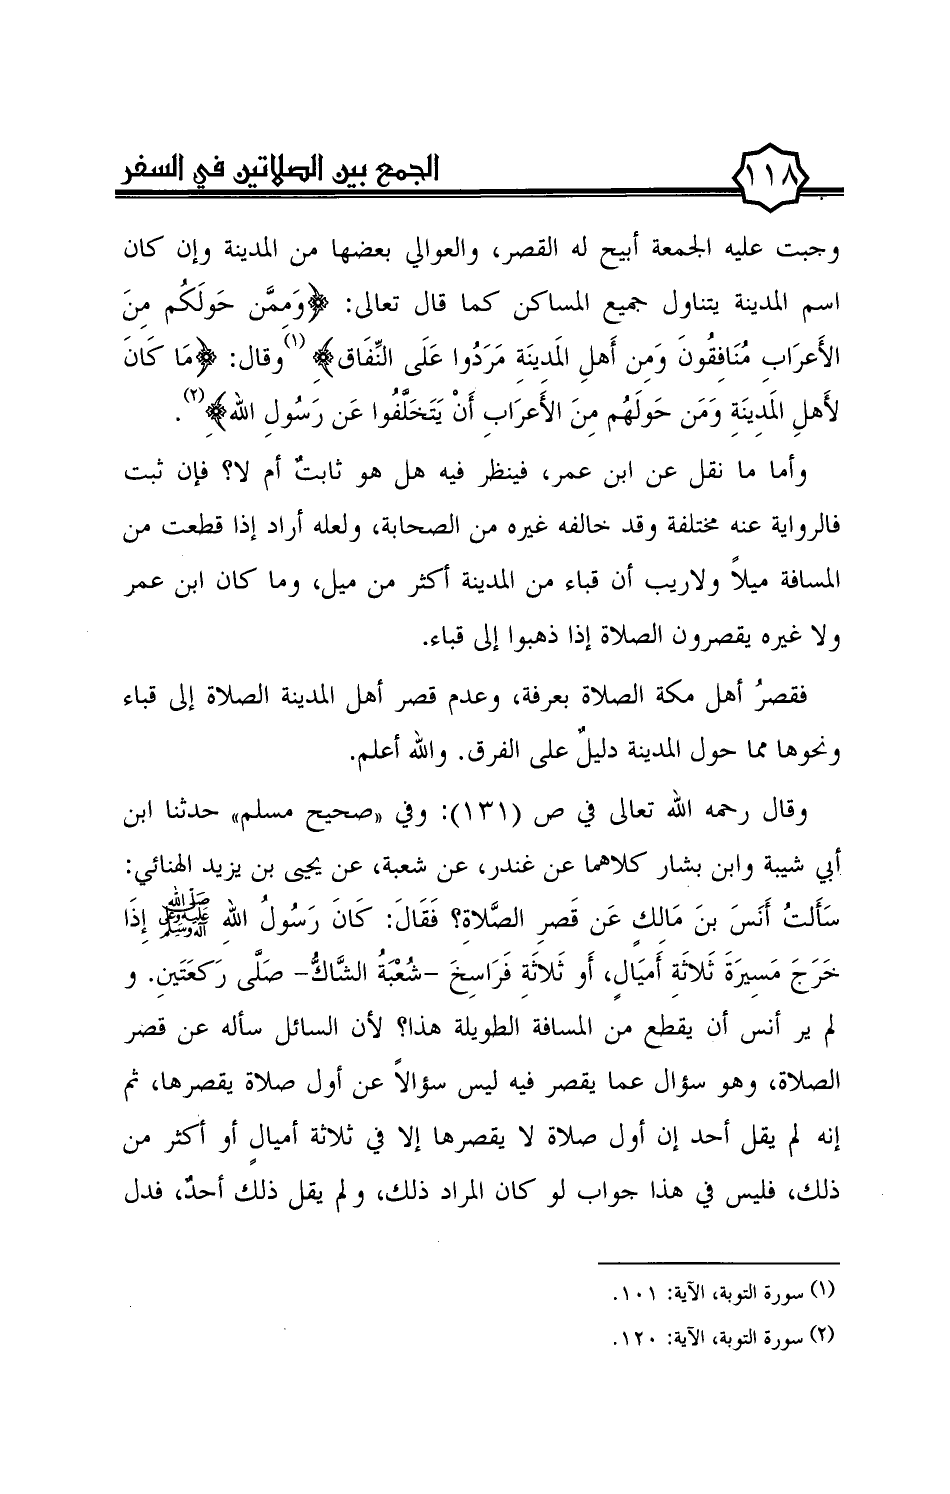 ١١٨
الجمع بين الصلاتين في السفر
وجبت عليه الجمعة أبيح له القصر، والعوالي بعضها من المدينة وإن كان
اسم المدينة يتناول جميع المساكن كما قال تعالى: ﴿وَمِمَّن حَولَكُم مِنَ
الأَعرَابِ مُنَافِقُونَ وَمِن أَهلِ المَدِينَةِ مَرَدُوا عَلَى النِّفَاقِ﴾(١) وقال: ﴿مَا كَانَ
لأَهلِ المَدِينَةِ وَمَن حَولَهُم مِنَ الأَعرَابِ أَنْ يَتَخَلَّفُوا عَن رَسُولِ اللهِ﴾(٢).
وأما ما نقل عن ابن عمر، فينظر فيه هل هو ثابتٌ أم لا؟ فإن ثبت
فالرواية عنه مختلفة وقد خالفه غيره من الصحابة، ولعله أراد إذا قطعت من
المسافة ميلاً ولاريب أن قباء من المدينة أكثر من ميل، وما كان ابن عمر
ولا غيره يقصرون الصلاة إذا ذهبوا إلى قباء.
فقصرُ أهل مكة الصلاة بعرفة، وعدم قصر أهل المدينة الصلاة إلى قباء
ونحوها مما حول المدينة دليلٌ على الفرق. والله أعلم.
وقال رحمه الله تعالى في ص (١٣١): وفي «صحيح مسلم» حدثنا ابن
أبي شيبة وابن بشار كلاهما عن غندر، عن شعبة، عن يحيى بن يزيد الهنائي:
سَأَلتُ أَنَسَ بنَ مَالِكٍ عَن قَصرِ الصَّلاةِ؟ فَقَالَ: كَانَ رَسُولُ اللهِ ﷺ إِذَا
خَرَجَ مَسِيرَةَ ثَلاثَةِ أَميَالٍ، أَو ثَلاثَةِ فَرَاسِخَ -شُعْبَةُ الشَّاكُّ- صَلَّى رَكعَتَينِ. و
لم ير أنس أن يقطع من المسافة الطويلة هذا؟ لأن السائل سأله عن قصر
الصلاة، وهو سؤال عما يقصر فيه ليس سؤالاً عن أول صلاة يقصرها، ثم
إنه لم يقل أحد إن أول صلاة لا يقصرها إلا في ثلاثة أميالٍ أو أكثر من
ذلك، فليس في هذا جواب لو كان المراد ذلك، ولم يقل ذلك أحدٌ، فدل
(١) سورة التوبة، الآية: ١٠١.
(٢) سورة التوبة، الآية: ١٢٠.